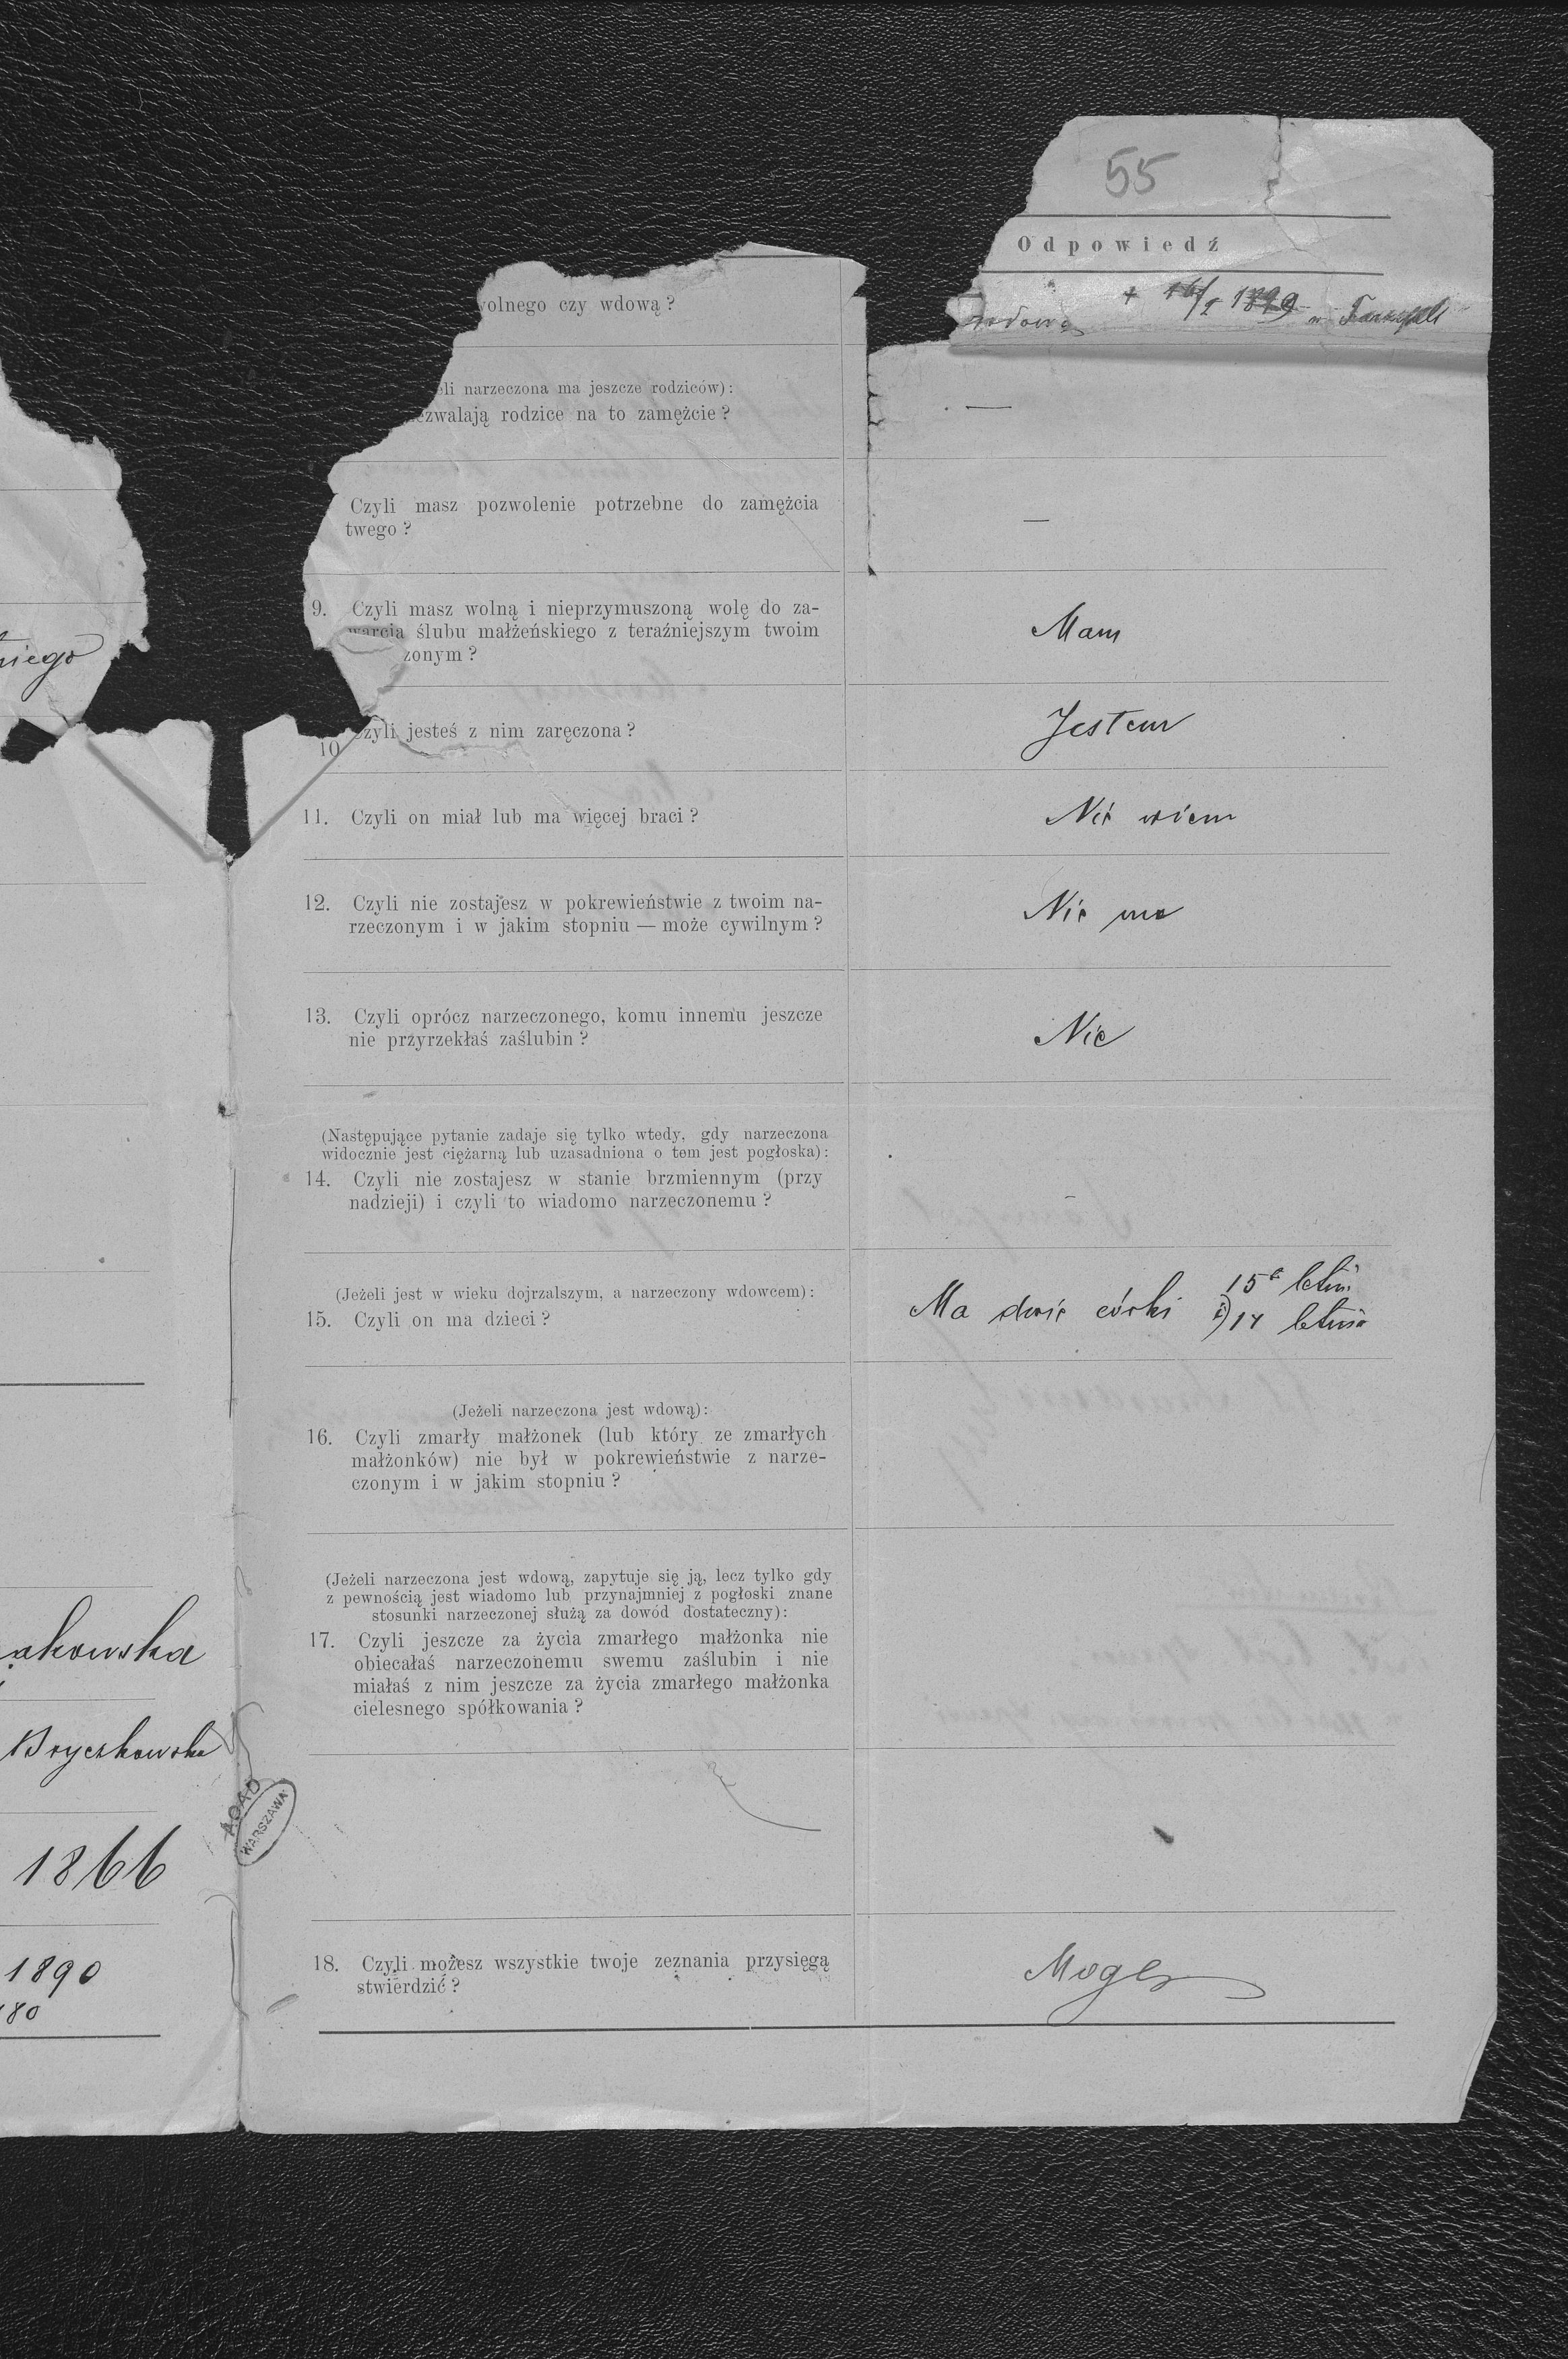 55
Odpowiedź
volnego czy wdową?
+ 16/I 1899 w
eli narzeczona ma jeszcze rodziców):
ezwalają rodzice na to zamężcie?
—
Czyli masz pozwolenie potrzebne do zamężcia
twego?
—
9. Czyli masz wolną i nieprzymuszoną wolę do za-
warcia ślubu małżeńskiego z teraźniejszym twoim
zonym?
Mam
niego
10 Czyli jesteś z nim zaręczona?
Jestem
11. Czyli on miał lub ma więcej braci?
Nie wiem
12. Czyli nie zostajesz w pokrewieństwie z twoim na-
rzeczonym i w jakim stopniu — może cywilnym?
Nie ma
13. Czyli oprócz narzeczonego, komu innemu jeszcze
nie przyrzekłaś zaślubin?
Nie
(Następujące pytanie zadaje się tylko wtedy, gdy narzeczona
widocznie jest ciężarną lub uzasadniona o tem jest pogłoska):
14. Czyli nie zostajesz w stanie brzmiennym (przy
nadzieji) i czyli to wiadomo narzeczonemu?
(Jeżeli jest w wieku dojrzalszym, a narzeczony wdowcem):
15. Czyli on ma dzieci?
Ma dwie córki 15 letni
2) 14 letnia
(Jeżeli narzeczona jest wdową):
16. Czyli zmarły małżonek (lub który ze zmarłych
małżonków) nie był w pokrewieństwie z narze-
czonym i w jakim stopniu?
(Jeżeli narzeczona jest wdową, zapytuje się ją, lecz tylko gdy
z pewnością jest wiadomo lub przynajmniej z pogłoski znane
stosunki narzeczonej służą za dowód dostateczny):
17. Czyli jeszcze za życia zmarłego małżonka nie
obiecałaś narzeczonemu swemu zaślubin i nie
miałaś z nim jeszcze za życia zmarłego małżonka
cielesnego spółkowania?
akowska
Bryczkowska
AGAD
WARSZAWA
1866
18. Czyli możesz wszystkie twoje zeznania przysięgą
stwierdzić?
Mogę
1890
80